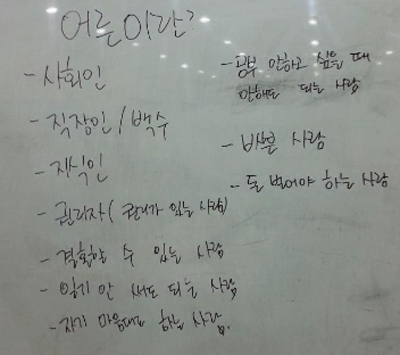 어른이란?
- 사회인
- 직장인 / 백수
- 지식인
- 권리자 ( 권리가 있는 사람)
- 결혼할 수 있는 사람
- 일기 안 써도 되는 사람
- 자기 마음대로 하는 사람.
- 공부 안하고 싶을 때
안해도 되는 사람
- 바쁜 사람
- 돈 벌어야 하는 사람